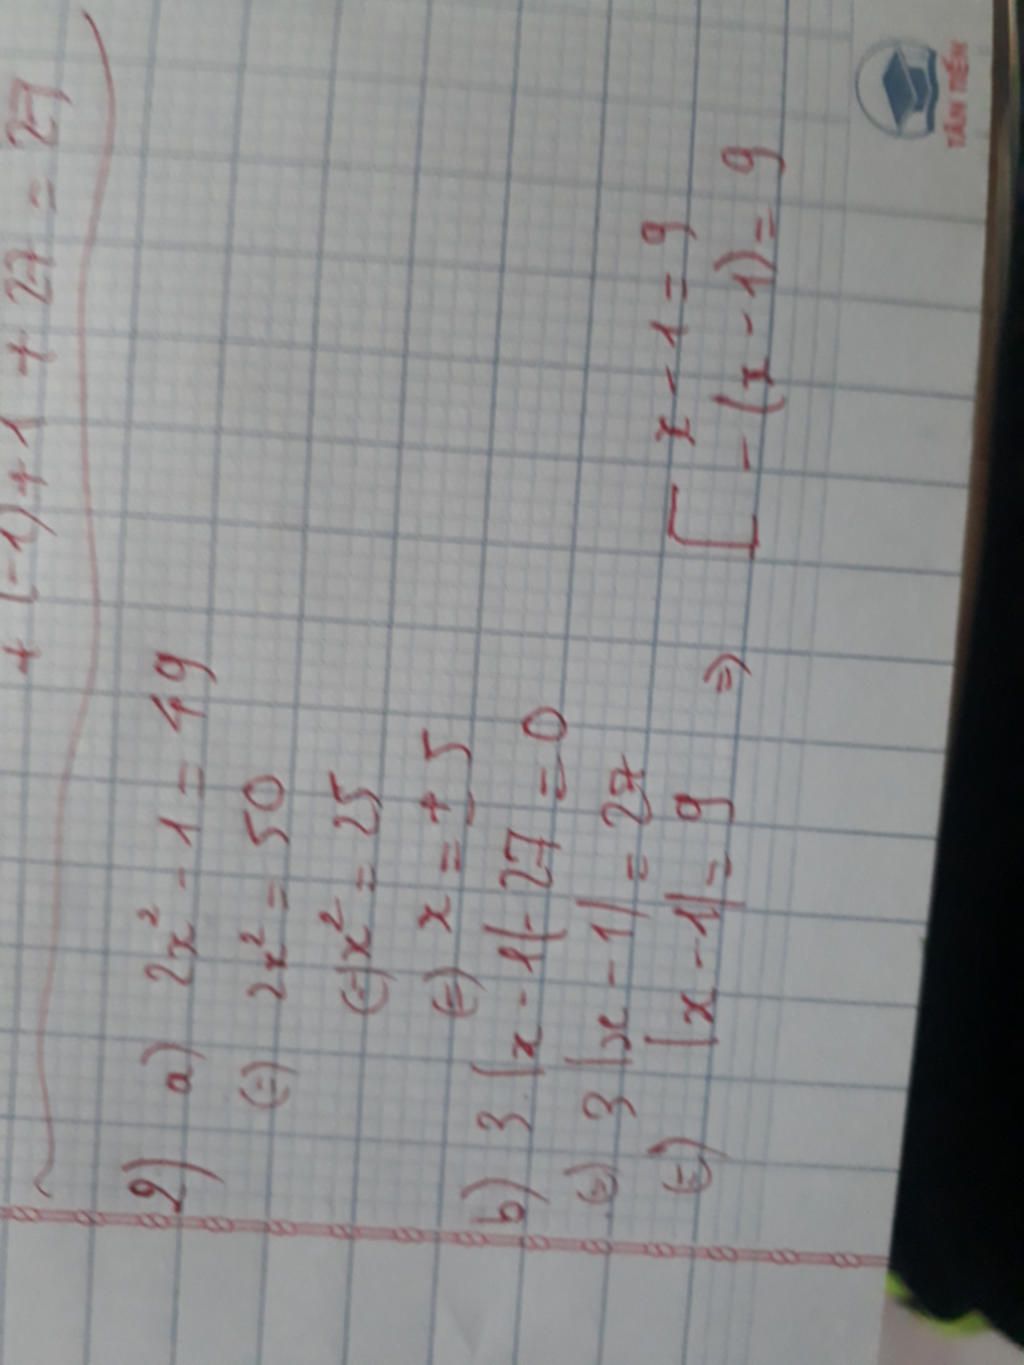 + (-1) + 1 + 27 = 27
2) a) 2x² - 1 = 49
(=) 2x² = 50
(=) x² = 25
(=) x = ± 5
b) 3 |x - 1| - 27 = 0
(=) 3 |x - 1| = 27
(=) |x - 1| = 9 => [ x - 1 = 9
- (x - 1) = 9
TÂN TIẾN